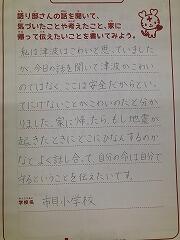 語り部さんの話を聞いて、
気づいたことや考えたこと、家に
帰って伝えたいことを書いてみよう。
私は津波はこわいと思っていました
が、今日の話を聞いて津波がこわい
のではなく、ここは安全だからといっ
てにげないことがこわいのだと分か
りました。家に帰ったら、もし地震が
起きたときにどこにひなんするのか
などよく話し合って、自分の命は自分で
守るということを伝えたいです。
学校名
市目小学校